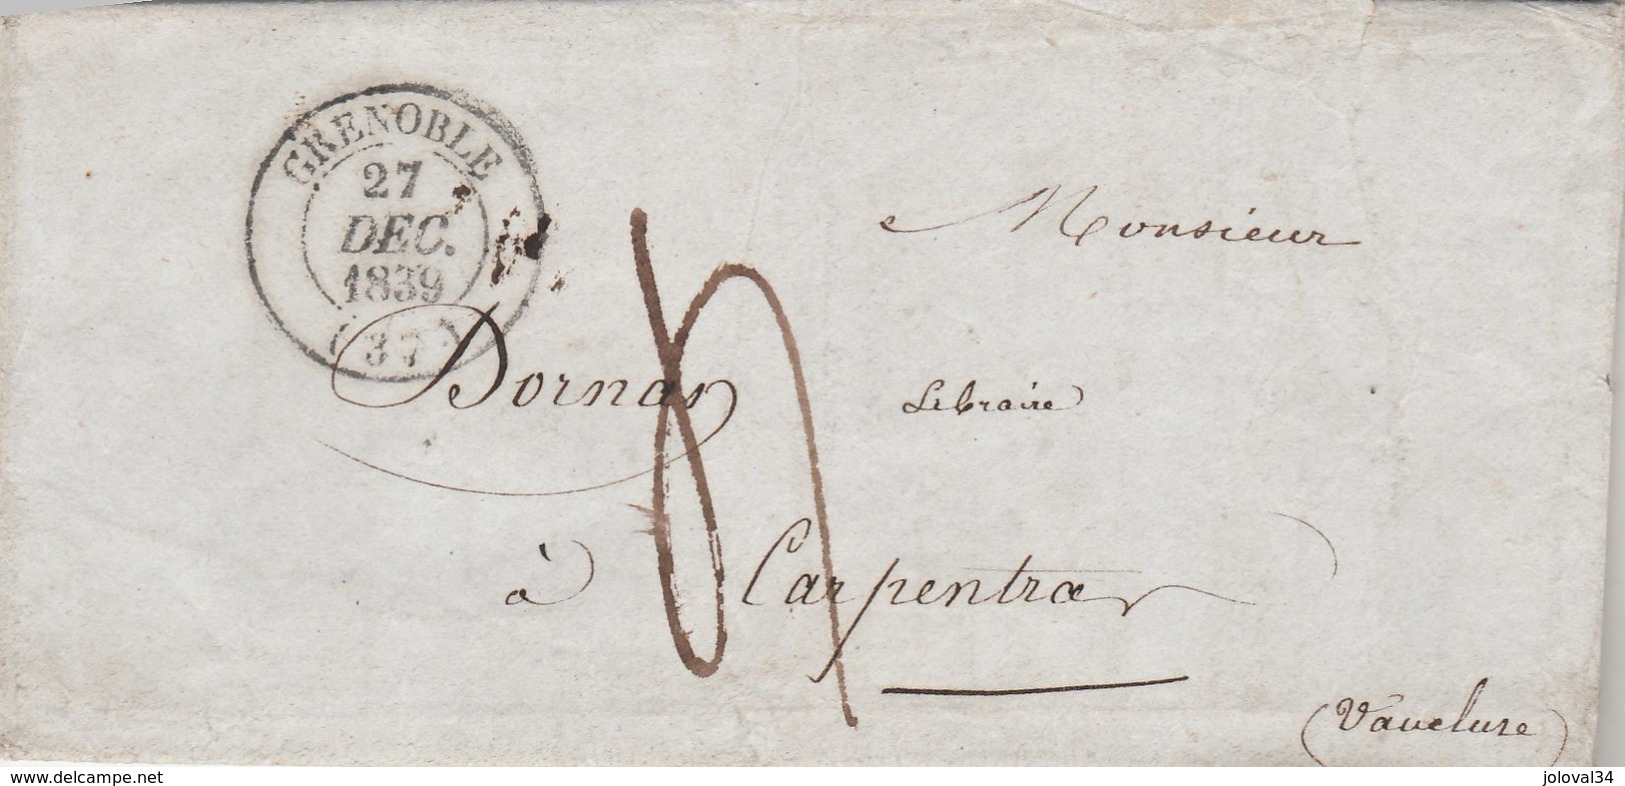 GRENOBLE
27
DEC.
1839
(37)
Monsieur
Libraire
à Carpentras
(Vaucluse)
www.delcampe.net
joloval34